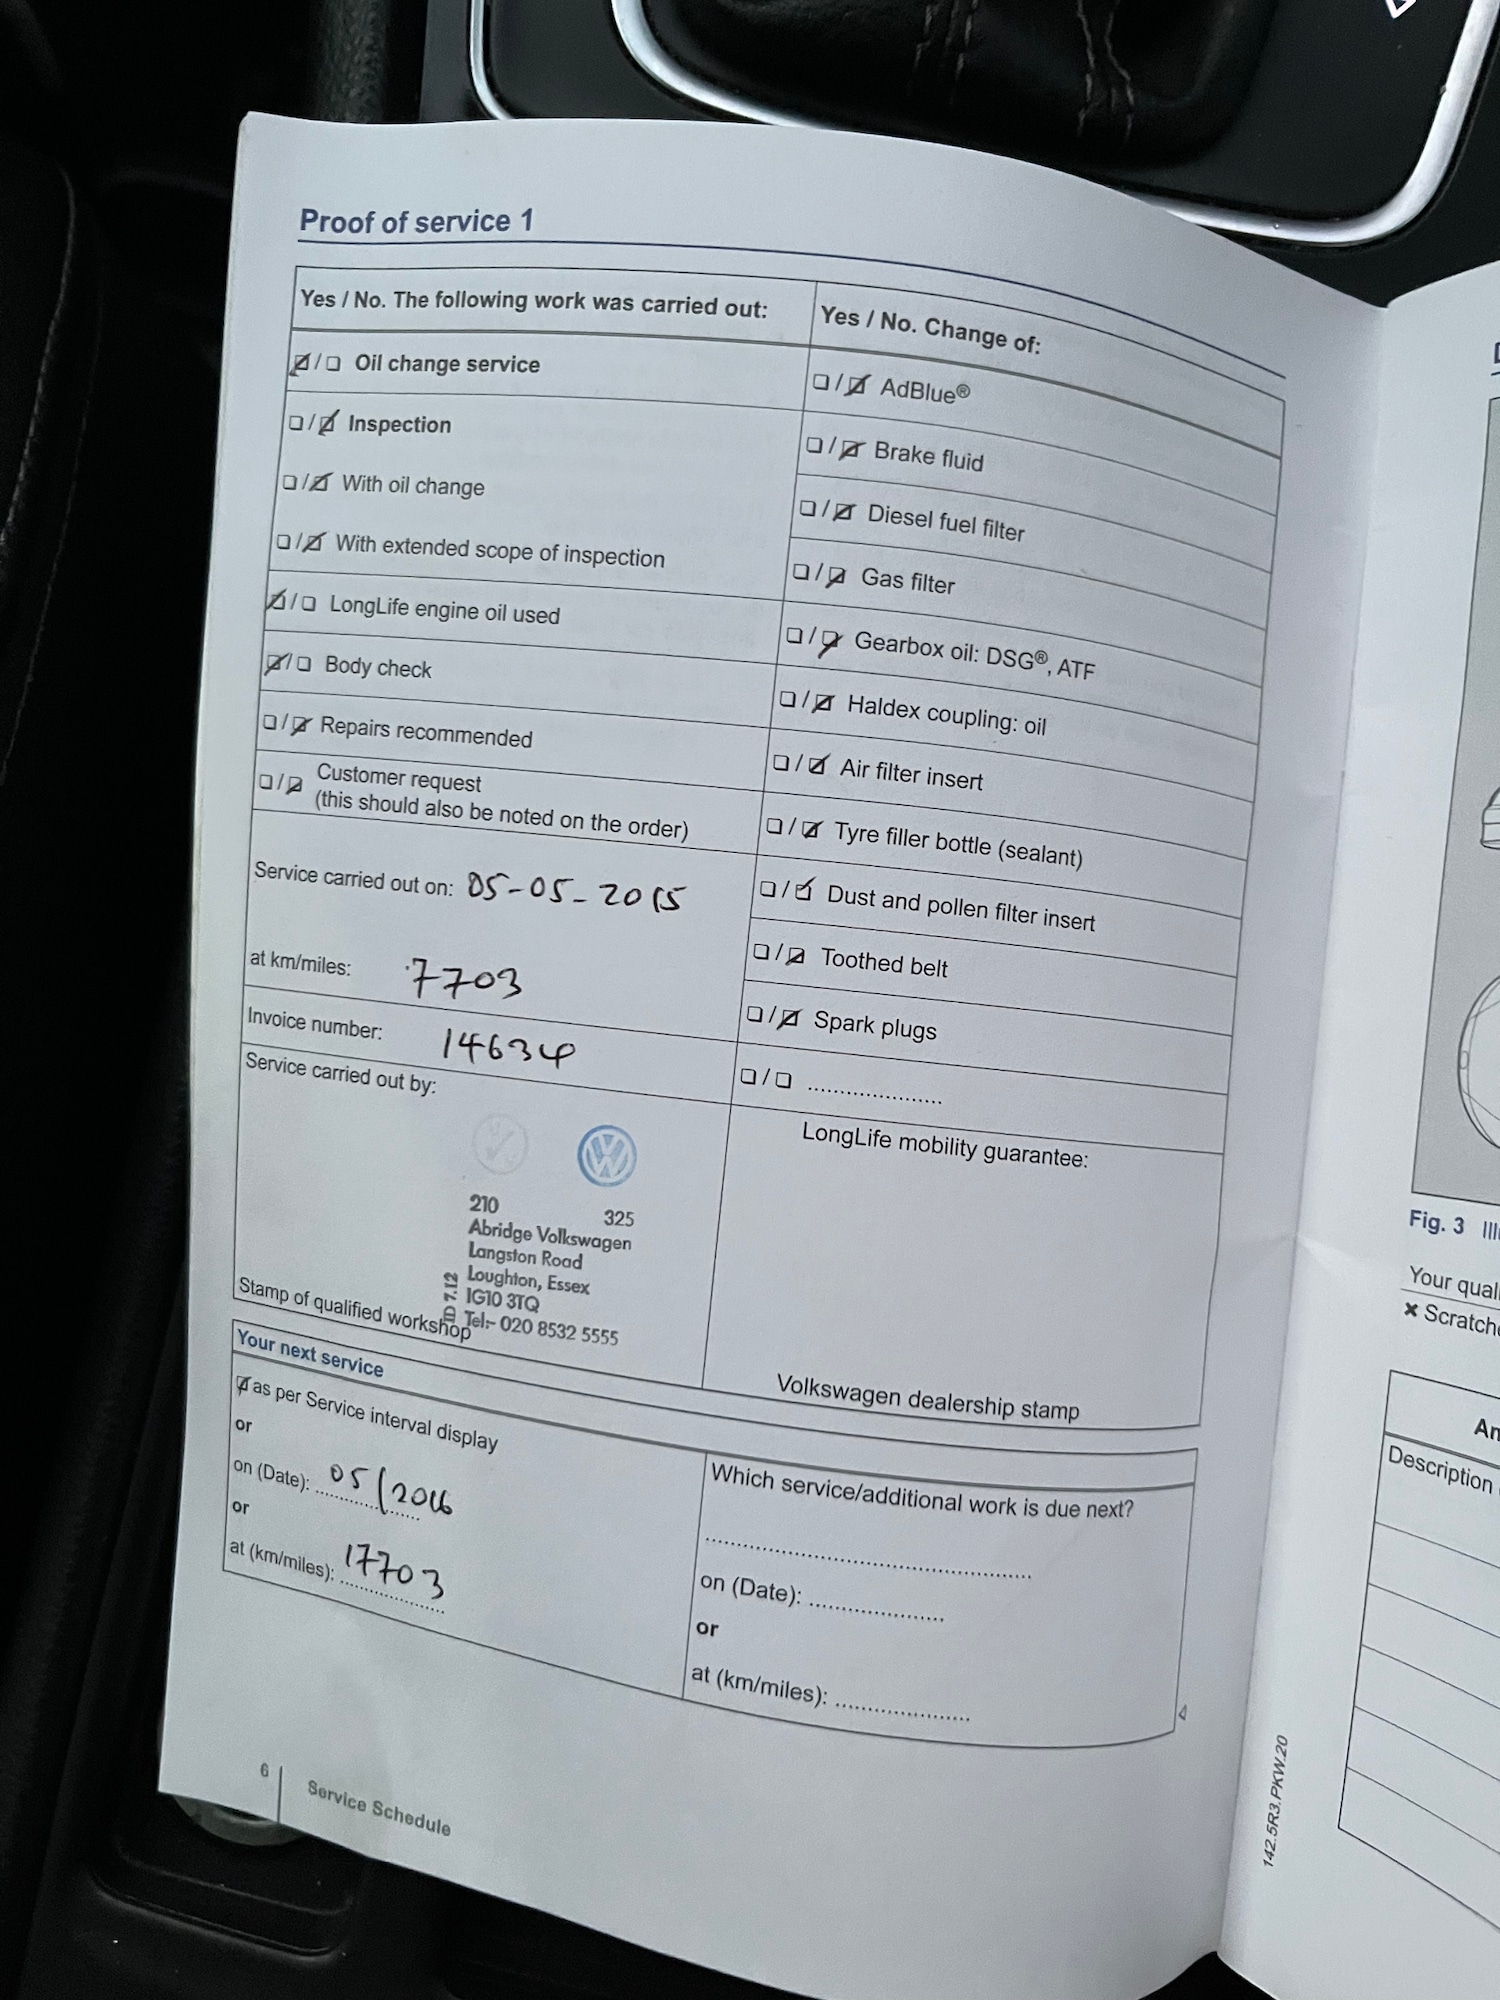 Proof of service 1
Yes / No. The following work was carried out:
☑/☐ Oil change service
☐/☑ Inspection
☐/☑ With oil change
☐/☑ With extended scope of inspection
☑/☐ LongLife engine oil used
☑/☐ Body check
☐/☑ Repairs recommended
☐/☑ Customer request
(this should also be noted on the order)
Service carried out on: 05-05-2015
at km/miles: 7703
Invoice number: 14634
Service carried out by:
210 325
Abridge Volkswagen
Langston Road
Loughton, Essex
IG10 3TQ
Tel:- 020 8532 5555
Stamp of qualified workshop
Yes / No. Change of:
☐/☑ AdBlue®
☐/☑ Brake fluid
☐/☑ Diesel fuel filter
☐/☑ Gas filter
☐/☑ Gearbox oil: DSG®, ATF
☐/☑ Haldex coupling: oil
☐/☑ Air filter insert
☐/☑ Tyre filler bottle (sealant)
☐/☑ Dust and pollen filter insert
☐/☑ Toothed belt
☐/☑ Spark plugs
☐/☐ ......................
LongLife mobility guarantee:
Volkswagen dealership stamp
Your next service
☑ as per Service interval display
or
on (Date): 05/2016
or
at (km/miles): 17703
Which service/additional work is due next?
on (Date): ......................
or
at (km/miles): ......................
6 Service Schedule
142.5R3.PKW.20
Fig. 3
Your
Description